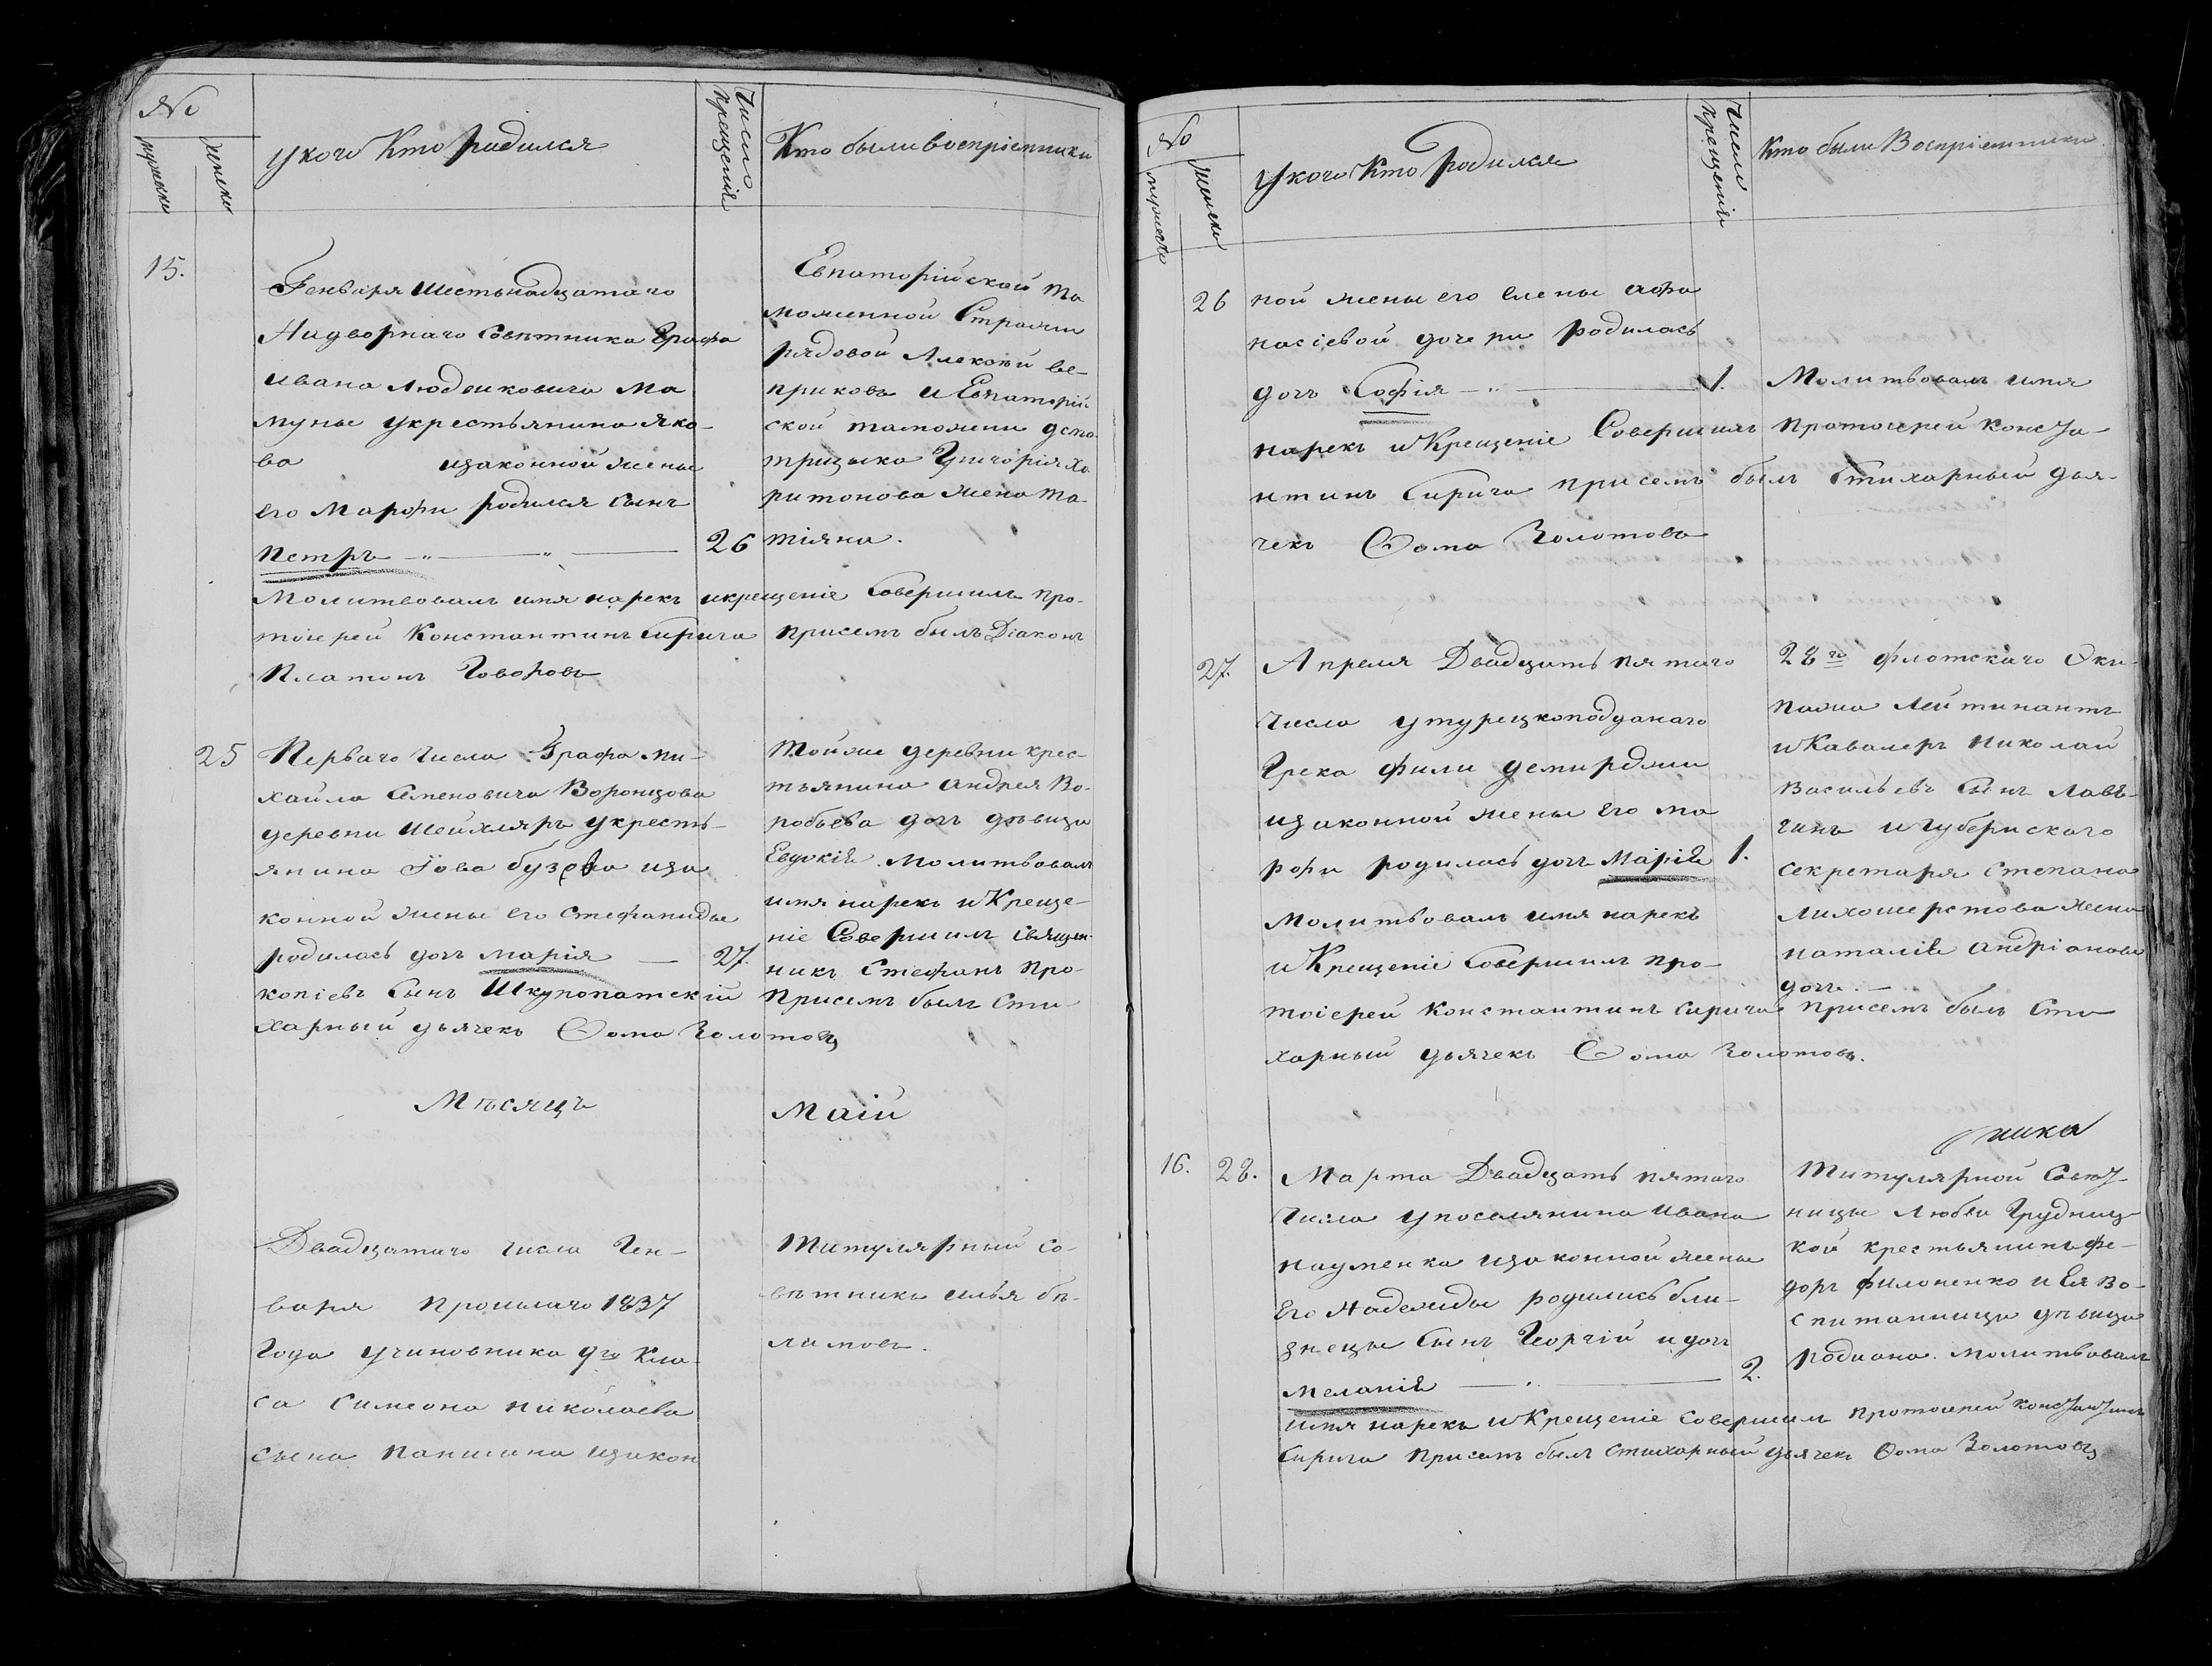 №
мужеска
женска
У кого Кто родился
Число крещенія
Кто были воспріемники
15.
Генваря Шестьнадцатаго
Надворнаго Совѣтника Графа
Ивана Людвиковича Мо
муны у крестьянина Яко-
ва изаконной жены
его Марфы родился сынъ
Петръ — „ — „ — 26
Евпаторійской та
моженной Стражи
рядовой Алексѣй ве-
приковъ и Евпаторій-
ской таможни досмо-
трщыка Григорія Ха
ритонова жена Та-
тіяна.
Молитвовалъ имя нарекъ икрещеніе Совершилъ про-
тоіерей Константинъ Сирига присемъ былъ Діаконъ
Платонъ Говоровъ
25 Перваго Числа Графа Ми-
хаила Семеновича Воронцова
деревни Шейхляръ укресть-
янина Іова бузева иза
конной жены его Стефаниды
родилась дочь Марія — 27.
Тойже деревни крес-
тьянина Андрея Во-
робьева дочь дѣвица
Евдокія. Молитвовалъ
имя нарекъ и Креще-
ніе Совершилъ Священ-
никъ Стефанъ Про-
копіевъ Сынъ Шкупопатскій Присемъ былъ Сти-
харный дьячекъ Ѳома Золотовъ
Мѣсяцъ Маій
Двадцатаго числа Ген-
варя прошлаго 1837
Года учиновника 9го Кла-
са Симеона Николаева
сына Папшина изакон
Титулярный Со-
вѣтникъ Илья бѣ-
лимовъ.
№
мужеска
женска
У кого Кто родился
Число крещенія
Кто были Воспріемники
26 ной жены его Елены Афа
насіевой дочери родилась
дочь Софія — „ — 1. Молитвовалъ имя
нарекъ и Крещеніе Совершилъ Протоіерей Конста-
нтинъ Сирига присемъ былъ Стихарный дья-
чекъ Ѳома Золотовъ
27. Апреля Двадцать пятаго
Числа утурецкоподданаго
Грека Фили Демирджи
изаконной жены его Ма
рфы родилась дочь Марія 1.
Молитвовалъ имя нарекъ
и Крещеніе Совершилъ про-
28го флотскаго Эки-
пажа Лейтинантъ
и Кавалеръ Николай
Васильевъ Сынъ Лавъ-
гинъ и Губернскаго
секретаря Степана
Лихошерстова жена
Наталія Андріанова
дочь. —
тоіерей Константинъ Сирига присемъ былъ Сти
харный дьячекъ Ѳома Золотовъ.
16. 28. Марта Двадцать пятаго
Числа упоселянина Ивана
Науменка изаконной жены
Его Надежды родились бли-
знецы Сынъ Георгій и дочь
Меланія — . — 2.
ника
Титулярной Совѣт-
ницы Любви Грудниц-
кой крестьянинъ Фе-
доръ Филоненко и Ея во-
спитанница дѣвица
Родиона. Молитвовалъ
имя нарекъ и Крещеніе Совершилъ Протоіерей Константинъ
Сирига Присемъ былъ Стихарный дьячекъ Ѳома Золотовъ